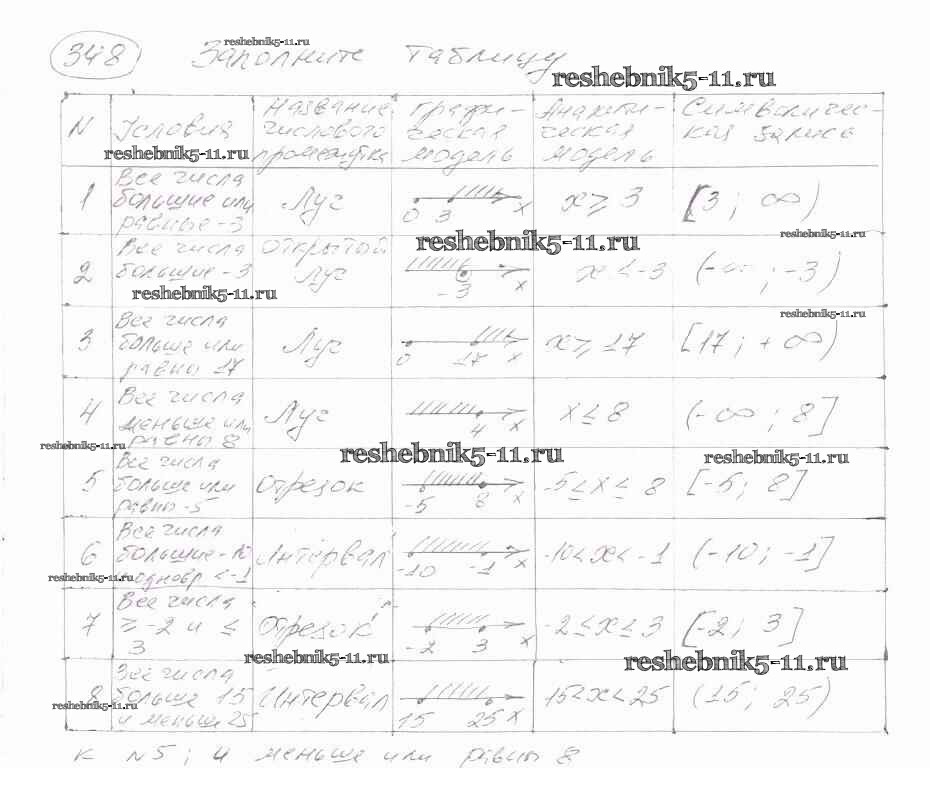 348 Заполните таблицу
reshebnik5-11.ru
reshebnik5-11.ru
N Условия Название числового промежутка Графическая модель Аналитическая модель Символическая запись
reshebnik5-11.ru
1 Все числа большие или равные -3 Луч 0 3 x x ≥ 3 [3 ; ∞)
reshebnik5-11.ru
reshebnik5-11.ru
2 Все числа большие -3 Открытый Луч -3 x x < -3 (-∞ ; -3)
reshebnik5-11.ru
reshebnik5-11.ru
3 Все числа больше или равны 17 Луч 0 17 x x ≥ 17 [17 ; + ∞)
4 Все числа меньше или равны 8 Луч 4 x x ≤ 8 (-∞ ; 8]
reshebnik5-11.ru
reshebnik5-11.ru
reshebnik5-11.ru
5 Все числа больше или равны -5 Отрезок -5 8 x -5 ≤ x ≤ 8 [-5 ; 8]
6 Все числа большие -10 и одновр < -1 Интервал -10 -1 x -10 < x < -1 (-10 ; -1]
reshebnik5-11.ru
7 Все числа ≥ -2 и ≤ 3 Отрезок -2 3 x -2 ≤ x ≤ 3 [-2 ; 3]
reshebnik5-11.ru
reshebnik5-11.ru
8 Все числа больше 15 и меньше 25 Интервал 15 25 x 15 < x < 25 (15 ; 25)
reshebnik5-11.ru
к N5 ; и меньше или равны 8